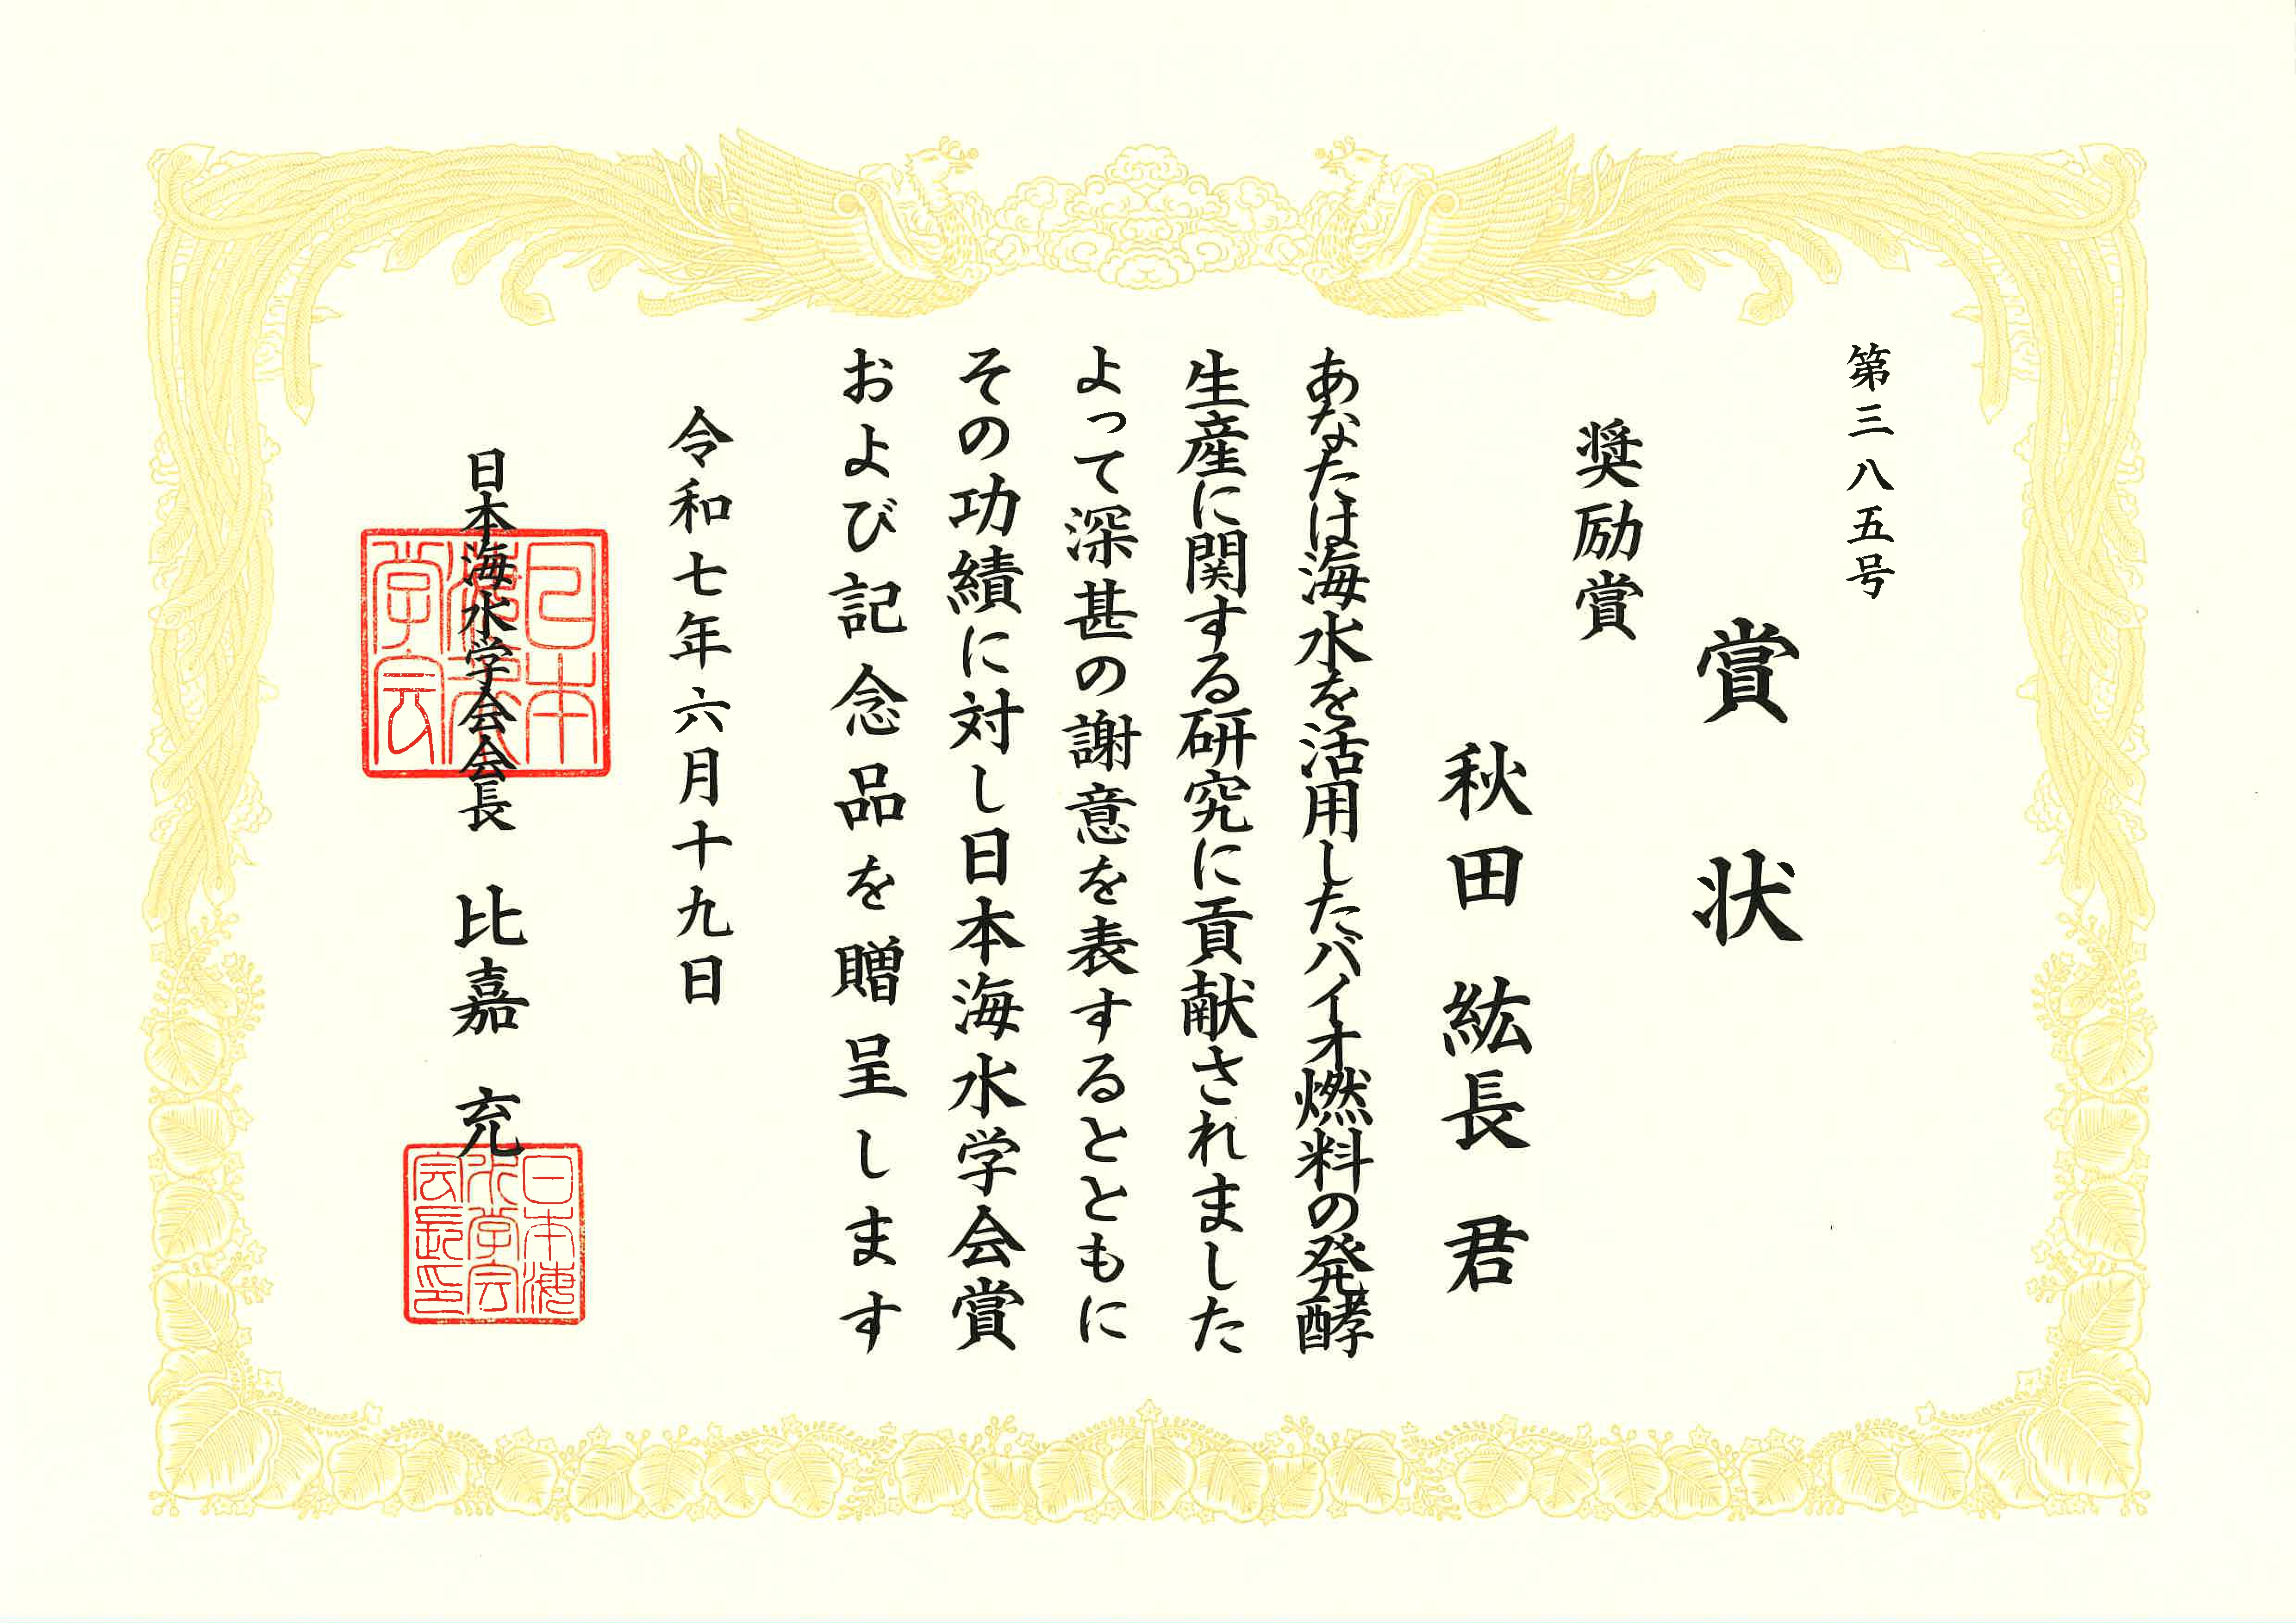 第三八五号
賞状
奨励賞
秋田 紘長 君
あなたは海水を活用したバイオ燃料の発酵
生産に関する研究に貢献されました
よって深甚の謝意を表するとともに
その功績に対し日本海水学会賞
および記念品を贈呈します
令和七年六月十九日
日本海水学会会長 比嘉 充
日本
海水
学会
日本海
水学会
会長印